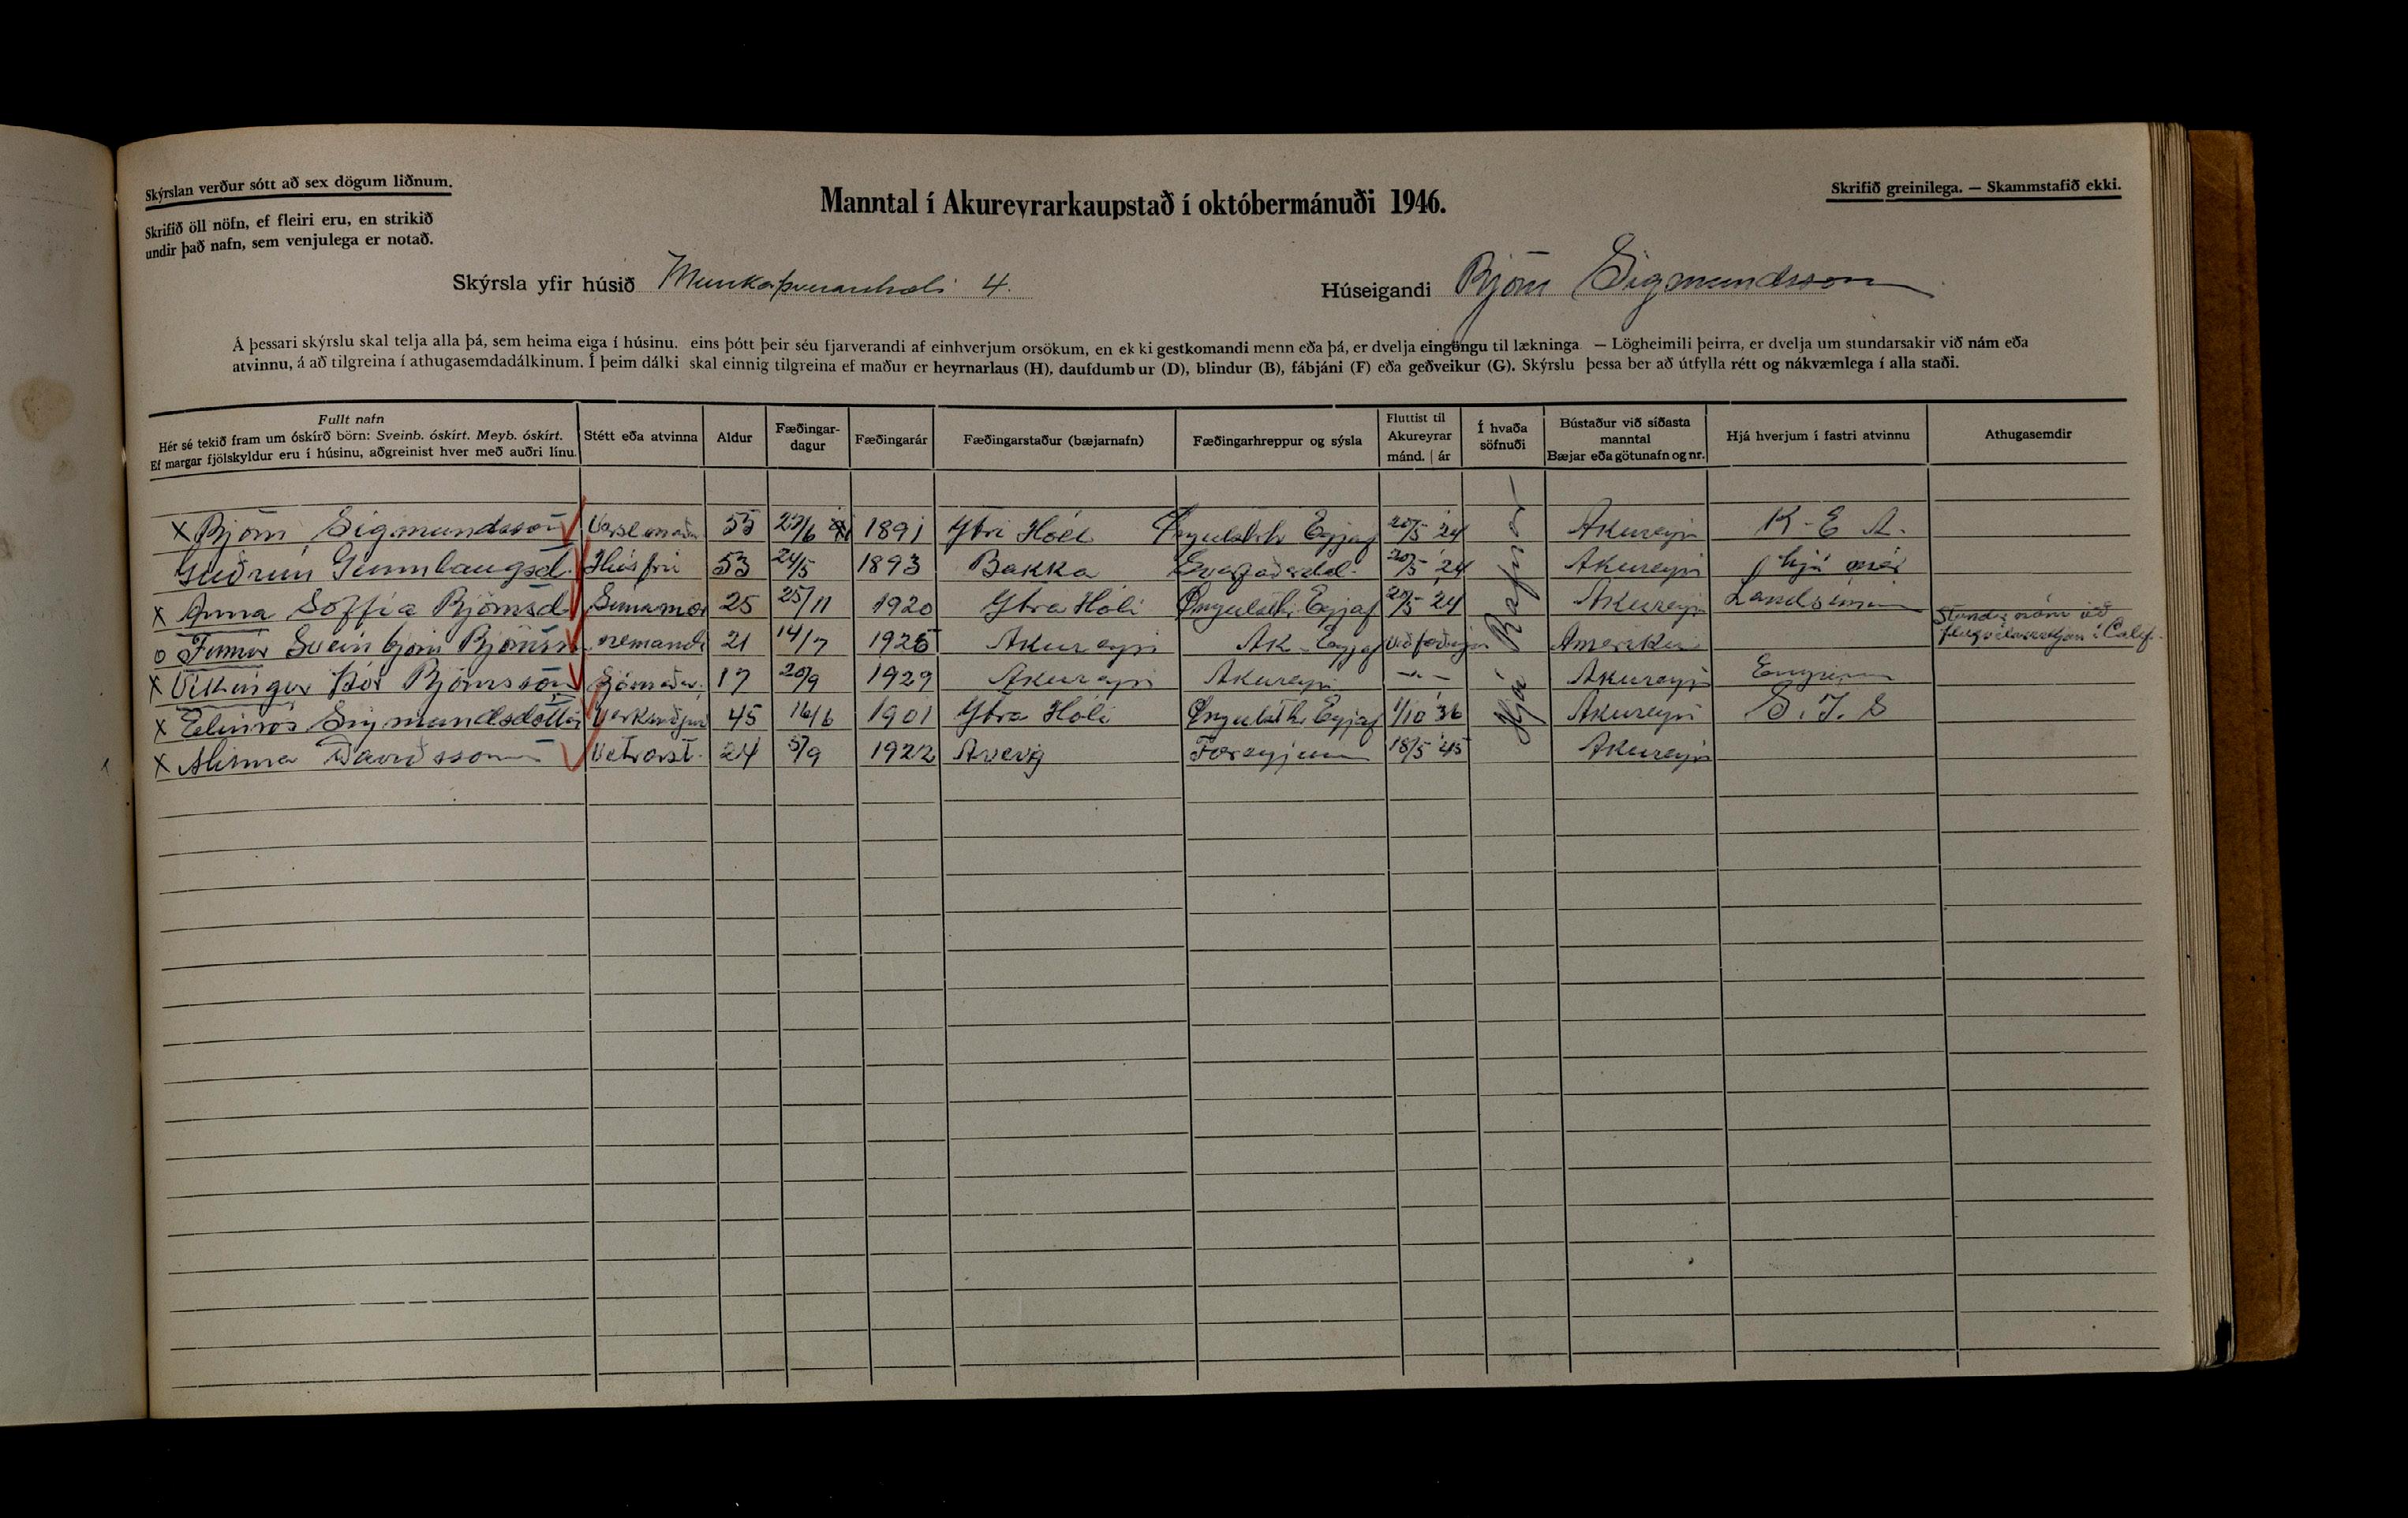 Skýrslan verður sótt að sex dögum liðnum.
Skrifið öll nöfn, ef fleiri eru, en strikið
undir það nafn, sem venjulega er notað.
Manntal í Akureyrarkaupstað í októbermánuði 1946.
Skrifið greinilega. — Skammstafið ekki.
Skýrsla yfir húsið Munkaþverárstræti 4.
Húseigandi Björn Sigmundsson
Á þessari skýrslu skal telja alla þá, sem heima eiga í húsinu. eins þótt þeir séu fjarverandi af einhverjum orsökum, en ek ki gestkomandi menn eða þá, er dvelja eingöngu til lækninga — Lögheimili þeirra, er dvelja um stundarsakir við nám eða
atvinnu, á að tilgreina í athugasemdadálkinum. Í þeim dálki skal einnig tilgreina ef maður er heyrnarlaus (H), daufdumb ur (D), blindur (B), fábjáni (F) eða geðveikur (G). Skýrslu þessa ber að útfylla rétt og nákvæmlega í alla staði.
Fullt nafn
Hér sé tekið fram um óskírð börn: Sveinb. óskírt. Meyb. óskírt.
Ef margar fjölskyldur eru í húsinu, aðgreinist hver með auðri línu.
Stétt eða atvinna
Aldur
Fæðingar-
dagur
Fæðingarár
Fæðingarstaður (bæjarnafn)
Fæðingarhreppur og sýsla
Fluttist til
Akureyrar
mánd. | ár
Í hvaða
söfnuði
Bústaður við síðasta
manntal
Bæjar eða götunafn og nr.
Hjá hverjum í fastri atvinnu
Athugasemdir
x Björn Sigmundsson 55 27/6 1891 Ytri Hóll Öngulsth Eyjaf 20/5 24 Akureyri K. E. A.
Guðrún Gunnlaugsd. Húsfrú 53 24/5 1893 Bakka Svarfaðardal 20/5 24 Akureyri hjá mér
x Anna Soffía Björnsd 25 25/11 1920 Ytra Hóli Öngulsth. Eyjaf 20/5 24 Akureyri Landsíminn
o Finnur Sveinbjörn Björnss nemandi 21 14/7 1925 Akureyri Ak. Eyjaf við fæðingu Ameriku Stundar nám við
í Calif.
x Víkingur Þór Björnsson 17 20/9 1929 Akureyri Akureyri — " — Akureyri Enginn
x Elinrós Sigmundsdóttir 45 16/6 1901 Ytra Hóli Öngulsth. Eyjaf 1/10 36 Akureyri S. Í. S
x Davidsson Vetrarst. 24 5/9 1922 Færeyjum 18/5 45 Akureyri
Hjá